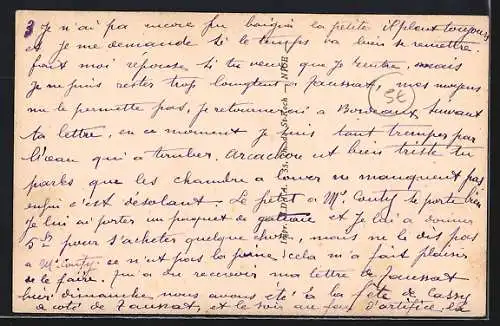 3 Je n'ai pa encore pu baigner la petite il pleut toujours
et je me demande si le temps va bien se remettre.
faut moi reponse si tu veux que je rentre, mais
Je ne puis rester trop longtemps a Taussat, mes moyens
ne le permette pas, je retournerai a Bordeaux suivant
ta lettre, en ce moment je suis tout tremper par
l'eau qui a tomber. Arcachon est bien triste tu
parles que les chambre a louer ne manquent pas
enfin c'est desolant. Le petit a Me Couty se porte bien
Je lui ai porter un paquet de gateaux et Je lui a donner
5 fr pour s'acheter quelque chose, mais ne le dis pas
a Me Couty. ce n'est pas la peine, cela m'a fait plaisir
de le faire. J'ai du recevoir ma lettre de Taussat
hier dimanche nous avons été à la fête de Cassy
a coté de Taussat, et le soir au feux d'artifice. La
5e